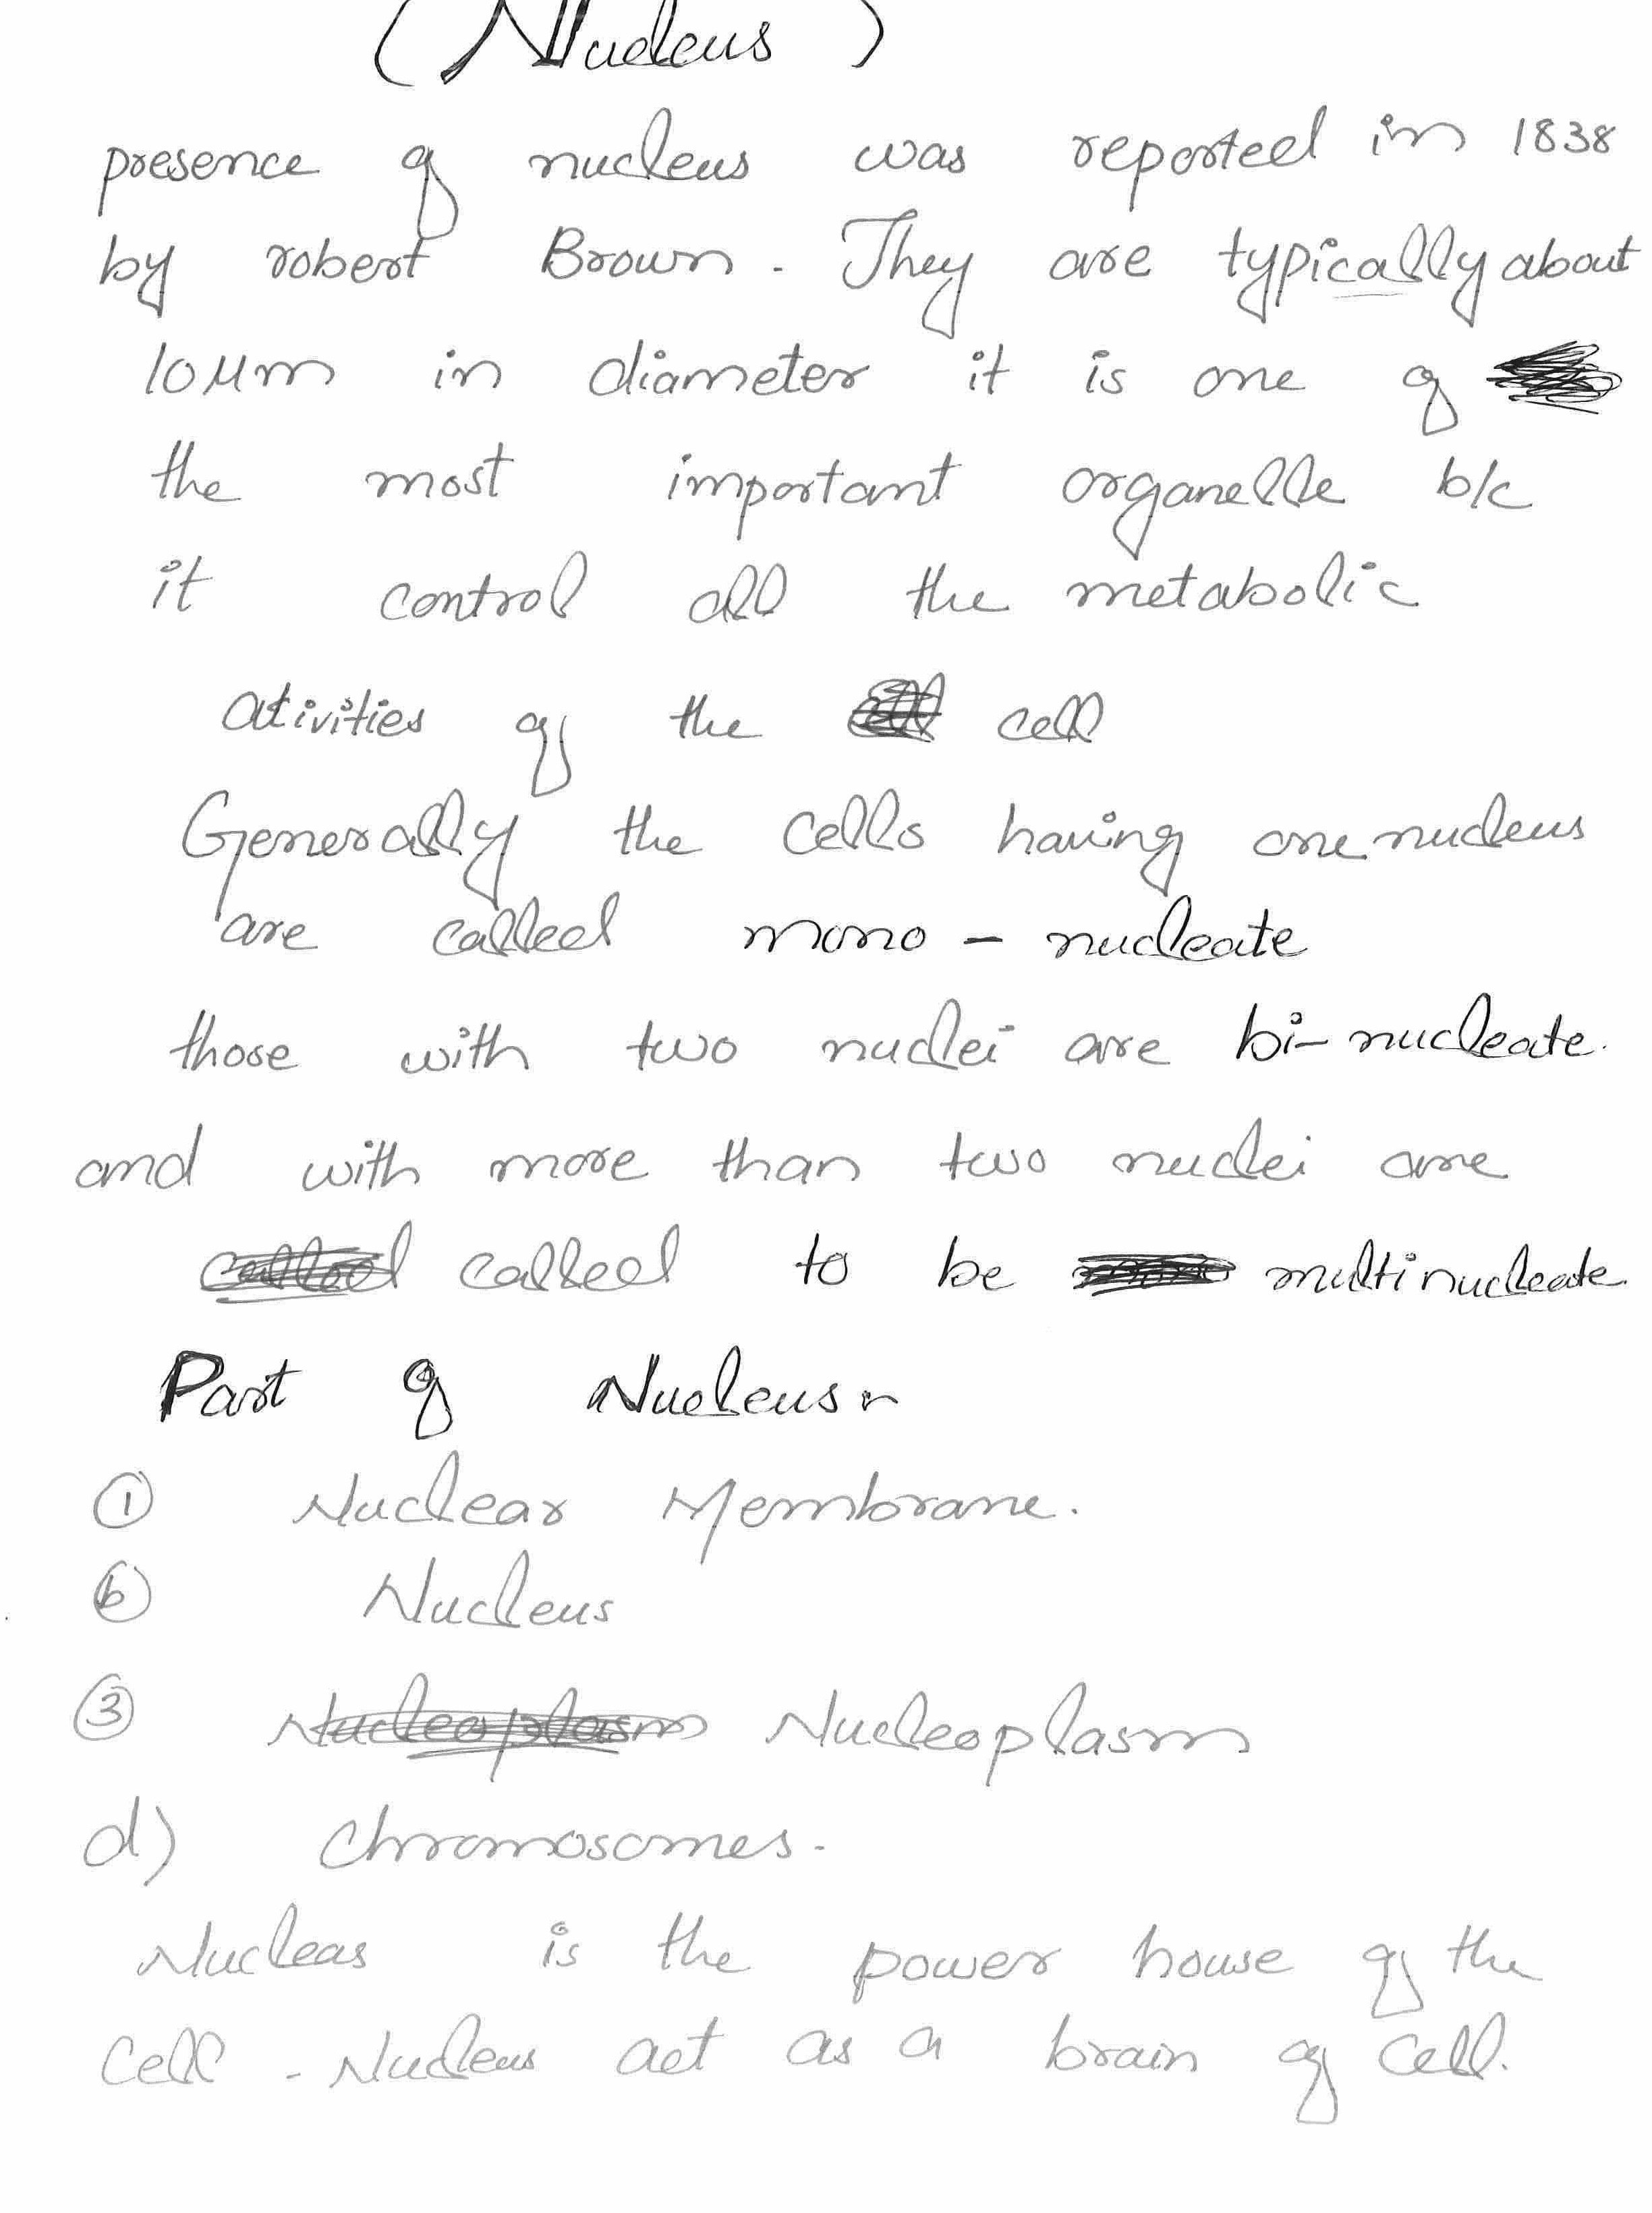 (Nucleus)
presence of nucleus was reported in 1838
by robert Brown. They are typically about
10 μm in diameter it is one of
the most important organelle b/c
it control all the metabolic
ativities of the cell
Generally the cells having one nucleus
are called mono - nucleate
those with two nuclei are bi-nucleate.
and with more than two nuclei are
called called to be multinucleate.
Part of Nucleus:-
① Nuclear Membrane.
ⓑ Nucleus
③ Nucleoplasm Nucleoplasm
d) Chromosomes.
Nucleas is the power house of the
Cell. Nucleus act as a brain of Cell.